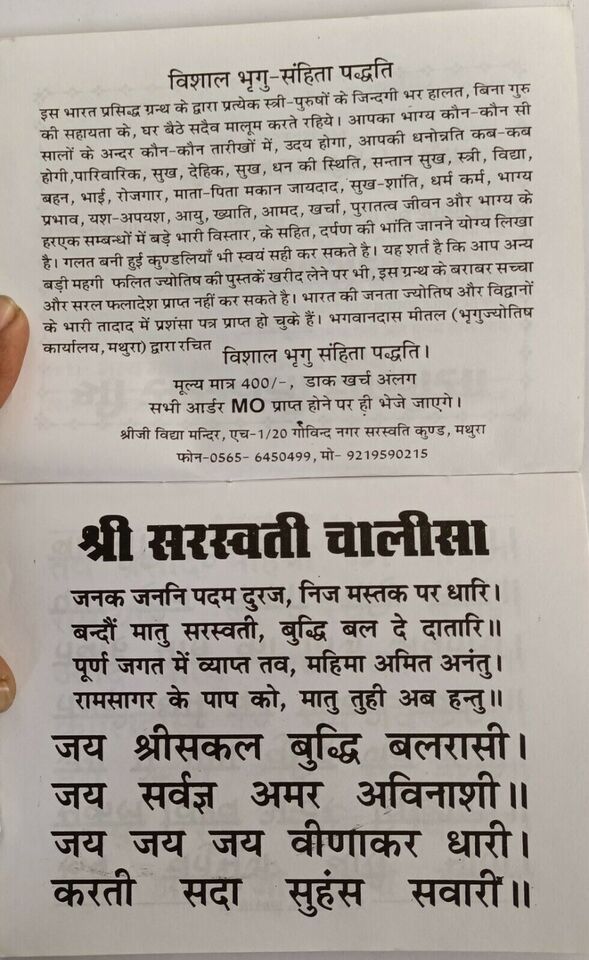 विशाल भृगु-संहिता पद्धति
इस भारत प्रसिद्ध ग्रन्थ के द्वारा प्रत्येक स्त्री-पुरुषों के जिन्दगी भर हालत, बिना गुरु
की सहायता के, घर बैठे सदैव मालूम करते रहिये। आपका भाग्य कौन-कौन सी
सालों के अन्दर कौन-कौन तारीखों में, उदय होगा, आपकी धनोन्नति कब-कब
होगी,पारिवारिक, सुख, देहिक, सुख, धन की स्थिति, सन्तान सुख, स्त्री, विद्या,
बहन, भाई, रोजगार, माता-पिता मकान जायदाद, सुख-शांति, धर्म कर्म, भाग्य
प्रभाव, यश-अपयश, आयु, ख्याति, आमद, खर्चा, पुरातत्व जीवन और भाग्य के
हरएक सम्बन्धों में बड़े भारी विस्तार, के सहित, दर्पण की भांति जानने योग्य लिखा
है। गलत बनी हुई कुण्डलियाँ भी स्वयं सही कर सकते है। यह शर्त है कि आप अन्य
बड़ी महगी फलित ज्योतिष की पुस्तकें खरीद लेने पर भी, इस ग्रन्थ के बराबर सच्चा
और सरल फलादेश प्राप्त नहीं कर सकते है। भारत की जनता ज्योतिष और विद्वानों
के भारी तादाद में प्रशंसा पत्र प्राप्त हो चुके हैं। भगवानदास मीतल (भृगुज्योतिष
कार्यालय, मथुरा) द्वारा रचित विशाल भृगु संहिता पद्धति।
मूल्य मात्र 400/-, डाक खर्च अलग
सभी आर्डर MO प्राप्त होने पर ही भेजे जाएगे।
श्रीजी विद्या मन्दिर, एच-1/20 गोविन्द नगर सरस्वति कुण्ड, मथुरा
फोन-0565- 6450499, मो- 9219590215
श्री सरस्वती चालीसा
जनक जननि पदम दुरज, निज मस्तक पर धारि।
बन्दौं मातु सरस्वती, बुद्धि बल दे दातारि॥
पूर्ण जगत में व्याप्त तव, महिमा अमित अनंतु।
रामसागर के पाप को, मातु तुही अब हन्तु॥
जय श्रीसकल बुद्धि बलरासी।
जय सर्वज्ञ अमर अविनाशी॥
जय जय जय वीणाकर धारी।
करती सदा सुहंस सवारी॥